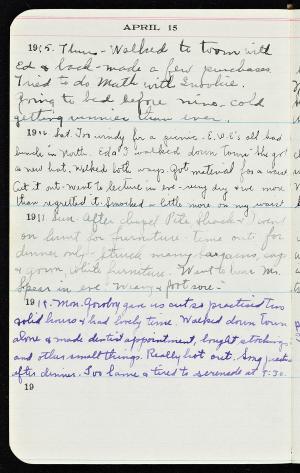 APRIL 15
1915. Thurs - Walked to town with
Ed & back - made a few purchases.
Tried to do Math with
Going to bed before nine. Cold
getting worse than ever.
19 Sat. Too windy for a picnic. E.W.E's all had
lunch in North. Eda & I walked down town. She got
a new hat. Walked both ways. Got material for a waist
Cut it out. Went to lecture in eve - very dry & we more
than regretted it. Smocked a little more on my waist
19 Sun. After chapel Pete & I went
on hunt for furniture time out for
dinner only - struck many bargains, cap
& gown, white furniture. Went to hear Mr.
Speer in eve. Weary & foot sore -
1918. Mon. gave us out & practised two
solid hours & had lovely time. Walked down town
alone & made dentist appointment, bought stockings
and other small things. Really hot out. Song
after dinner. Too lame & tired to serenade at 9:30.
19